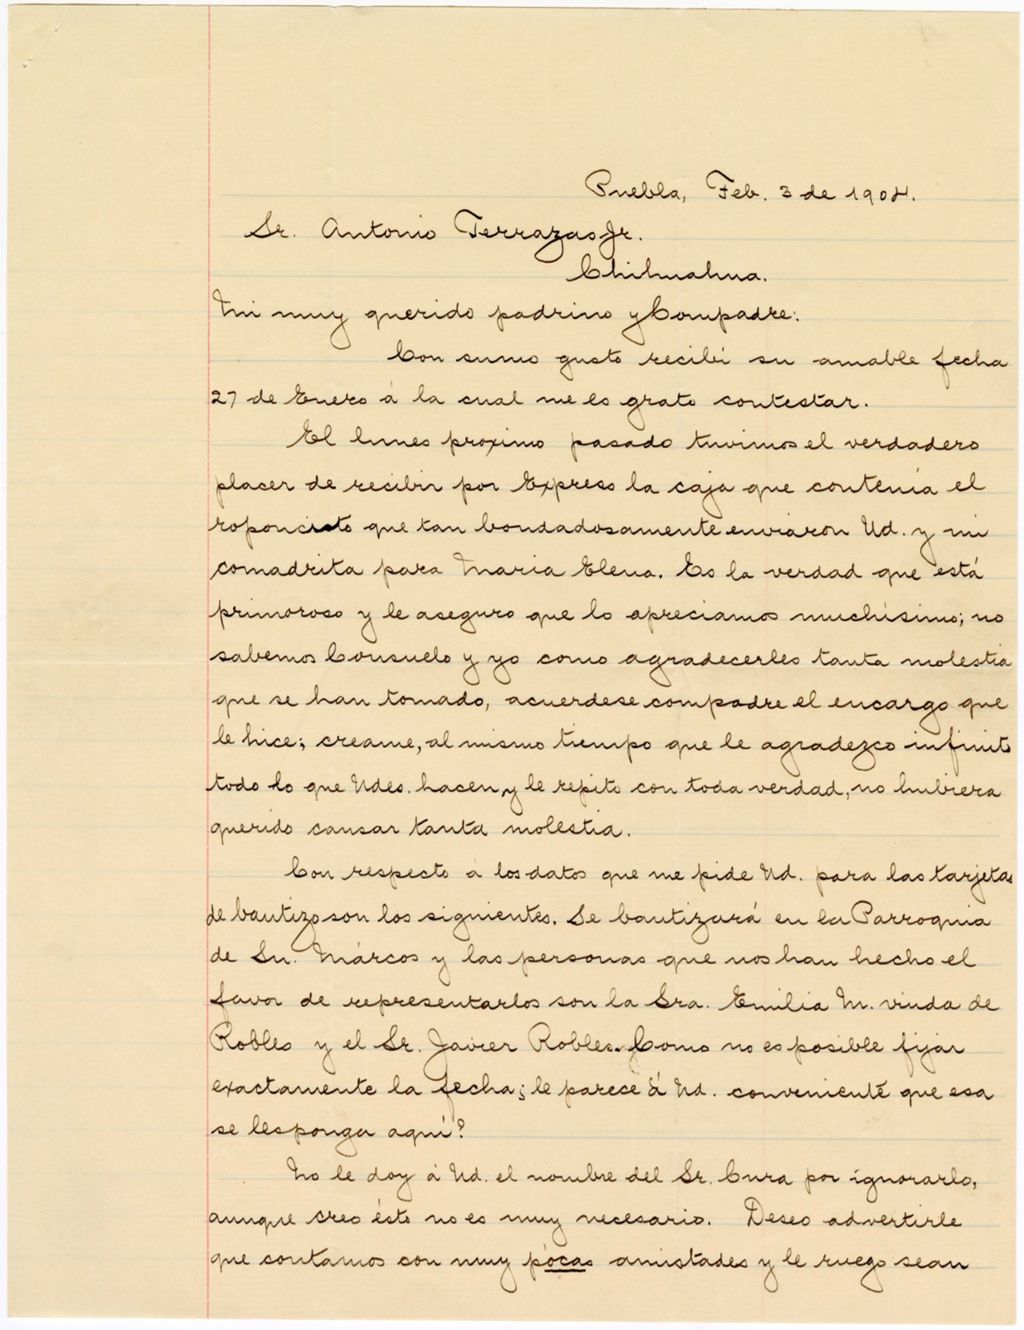 Puebla, Feb. 3 de 1904.
Sr. Antonio Terrazas Jr.
Chihuahua.
Mi muy querido padrino y Compadre:
Con sumo gusto recibí su amable fecha
27 de Enero á la cual me es grato contestar.
El lunes proximo pasado tuvimos el verdadero
placer de recibir por Expreso la caja que contenía el
roponcito que tan bondadosamente enviaron Ud. y mi
comadrita para Maria Elena. Es la verdad que está
primoroso y le aseguro que lo apreciamos muchísimo; no
sabemos Consuelo y yo como agradecerles tanta molestia
que se han tomado, acuerdese compadre el encargo que
le hice; creame, al mismo tiempo que le agradezco infinito
todo lo que Udes. hacen, y le repito con toda verdad, no hubiera
querido causar tanta molestia.
Con respecto á los datos que me pide Ud. para las tarjetas
de bautizo son los siguientes. Se bautizará en la Parroquia
de Sn. Márcos y las personas que nos han hecho el
favor de representarlos son la Sra. Emilia M. viuda de
Robles y el Sr. Javier Robles. Como no es posible fijar
exactamente la fecha; le parece á Ud. conveniente que esa
se les ponga aquí?
No le doy á Ud. el nombre del Sr. Cura por ignorarlo,
aunque creo ésto no es muy necesario. Deseo advertirle
que contamos con muy pócas amistades y le ruego sean